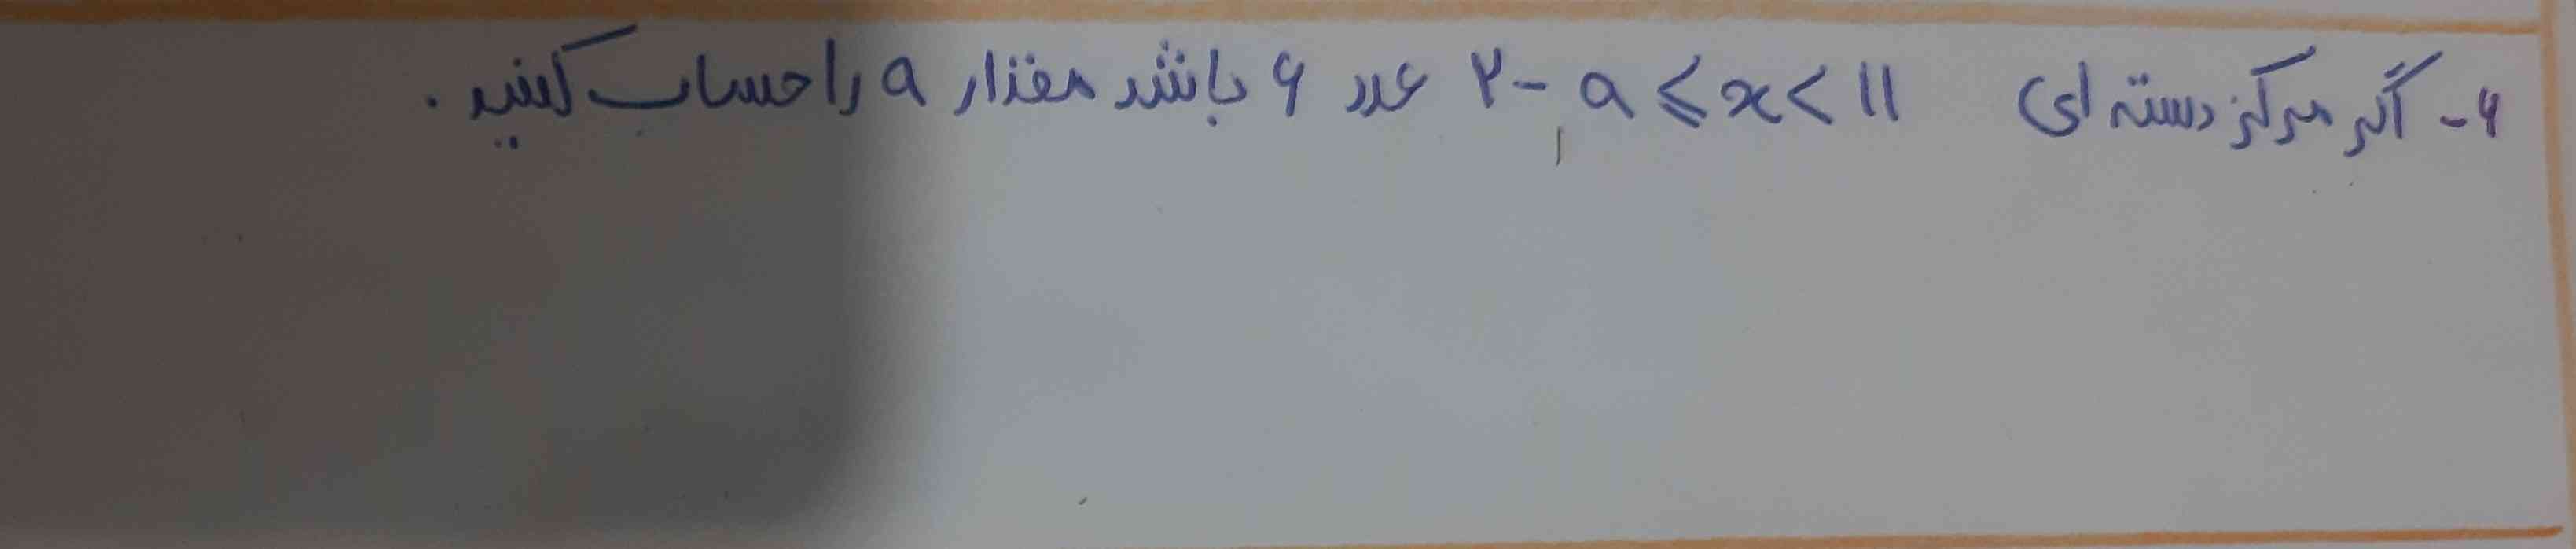 ۶- اگر مرکز دسته ای ۲- a ≤ x < ۱۱ عدد ۶ باشد مقدار a را حساب کنید.